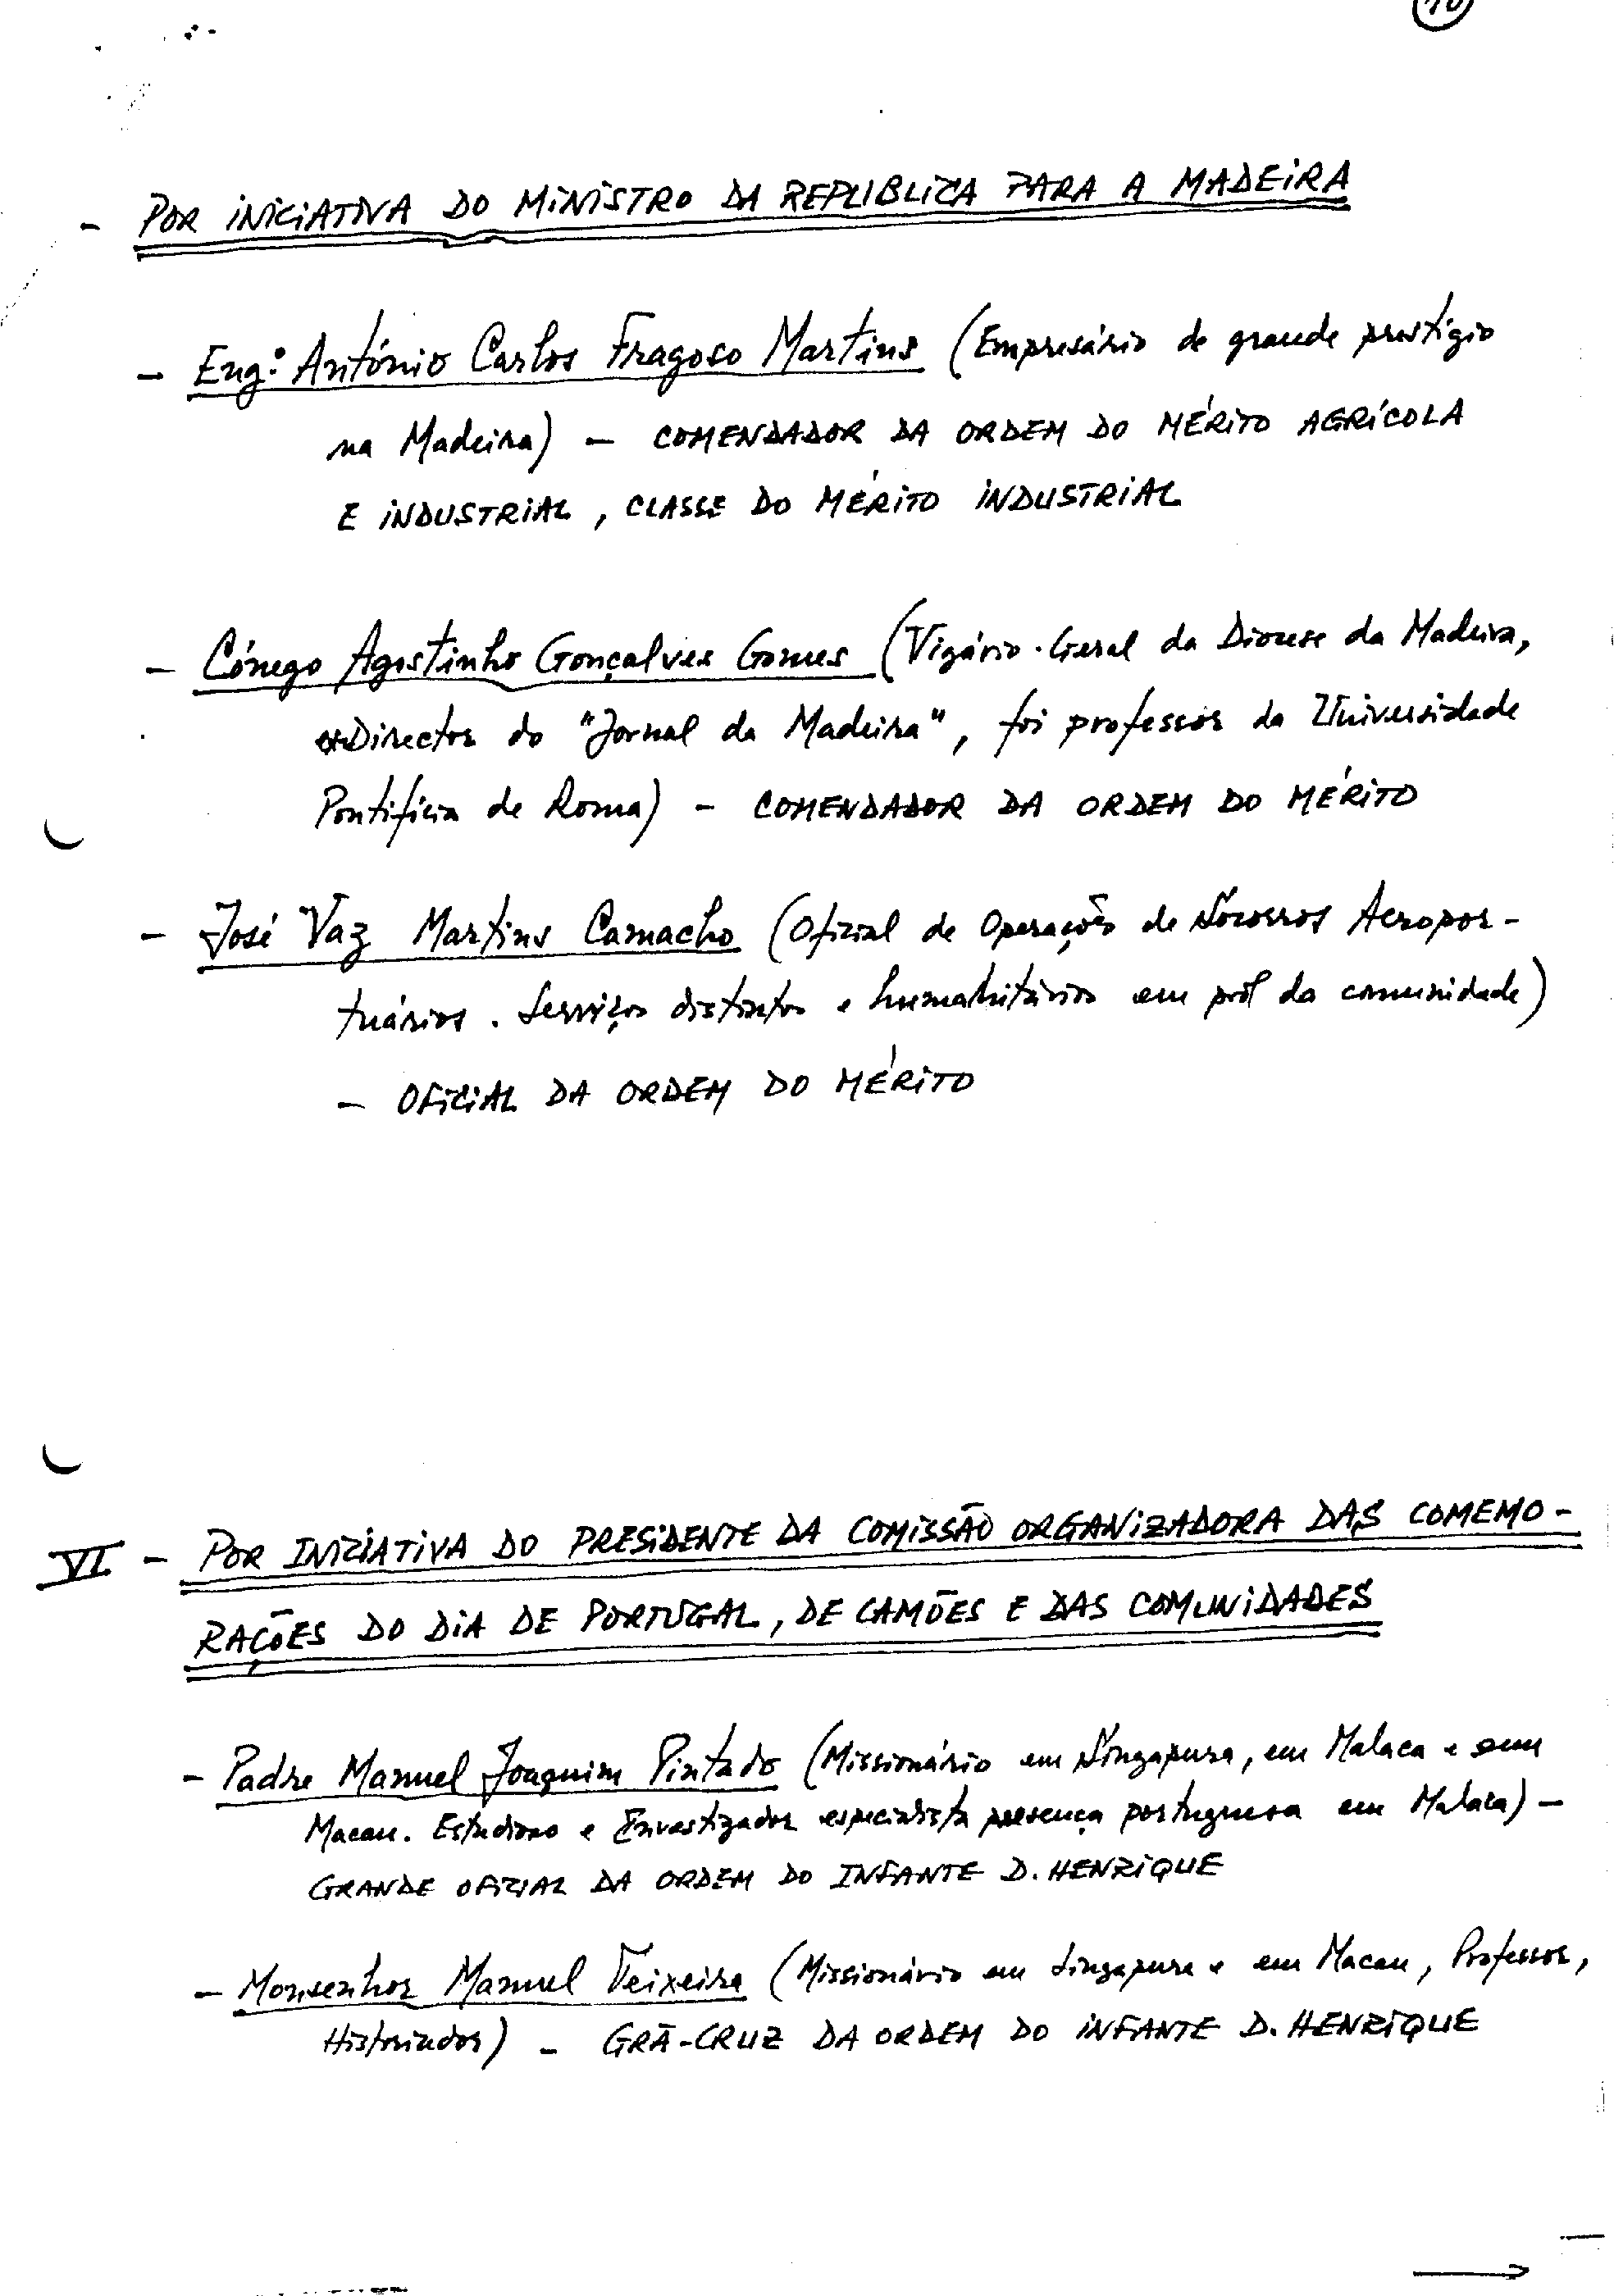 10
- POR INICIATIVA DO MINISTRO DA REPUBLICA PARA A MADEIRA
- Eng.º António Carlos Fragoso Martins (Empresário de grande prestígio
na Madeira) - COMENDADOR DA ORDEM DO MÉRITO AGRÍCOLA
E INDUSTRIAL, CLASSE DO MÉRITO INDUSTRIAL
- Cónego Agostinho Gonçalves Gomes (Vigário-Geral da Diocese da Madeira,
exDirector do "Jornal da Madeira", foi professor da Universidade
Pontifícia de Roma) - COMENDADOR DA ORDEM DO MÉRITO
- José Vaz Martins Camacho (Oficial de Operações de Socorros Aeropor-
tuários. Serviços distintos e humanitários em prol da comunidade)
- OFICIAL DA ORDEM DO MÉRITO
VI - POR INICIATIVA DO PRESIDENTE DA COMISSÃO ORGANIZADORA DAS COMEMO-
RAÇÕES DO DIA DE PORTUGAL, DE CAMÕES E DAS COMUNIDADES
- Padre Manuel Joaquim Pintado (Missionário em Singapura, em Malaca e em
Macau. Estudioso e Investigador especialista presença portuguesa em Malaca) -
GRANDE OFICIAL DA ORDEM DO INFANTE D. HENRIQUE
- Monsenhor Manuel Teixeira (Missionário em Singapura e em Macau, Professor,
Historiador) - GRÃ-CRUZ DA ORDEM DO INFANTE D. HENRIQUE